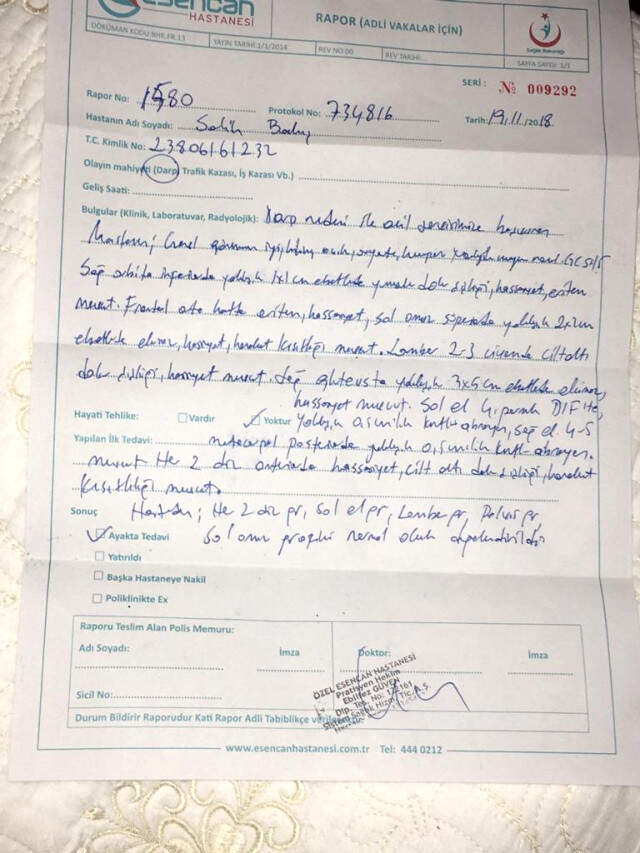 Esencan
HASTANESİ
RAPOR (ADLİ VAKALAR İÇİN)
Sağlık Bakanlığı
DÖKÜMAN KODU:BHK.FR.13
YAYIN TARİHİ:1/1/2014
REV NO:00
REV TARİHİ:...
SAYFA SAYISI: 1/1
SERİ : № 009292
Rapor No: 1580
Protokol No: 734816
Tarih: 19/11/2018
Hastanın Adı Soyadı: Salih
T.C. Kimlik No: 23806161232
Olayın mahiyeti (Darp) Trafik Kazası, İş Kazası Vb.)
Geliş Saati:
Bulgular (Klinik, Laboratuvar, Radyolojik): Darp nedeni ile acil servisimize başvuran
hastanın; Genel durumu iyi, bilinç açık, GCS:15
Sağ orbita inferiorda yaklaşık 1x1 cm ebatlarda yumuşak doku şişliği, hassasiyet, eritem
mevcut. Frontal orta hatta eritem, hassasiyet, sol omuz superiorda yaklaşık 2x2cm
ebatlarda ekimoz, hassasiyet, hareket kısıtlılığı mevcut. Lomber 2-3 ciltaltı
doku şişliği, hassasiyet mevcut. Sağ yaklaşık 3x5 cm ebatlarda ekimoz,
hassasiyet mevcut. Sol el 4. parmak DIF te,
Hayati Tehlike: Vardır Yoktur yaklaşık sağ el 4-5
Yapılan İlk Tedavi: metacarpal posteriorda yaklaşık
mevcut. Her 2 diz anteriorda hassasiyet, cilt altı doku şişliği, hareket
kısıtlılığı mevcut.
Sonuç Hastanın; Her 2 diz gr, Sol el gr, Lomber gr, Pelvis gr,
Ayakta Tedavi Sol omuz grafileri normal olarak değerlendirildi.
Yatırıldı
Başka Hastaneye Nakil
Poliklinikte Ex
Raporu Teslim Alan Polis Memuru:
Adı Soyadı:
İmza
Doktor:
İmza
ÖZEL ESENCAN HASTANESİ
Pratisyen Hekim
GÜVEN
Dip. Tes. No:
Sağlık Hizm. Tic. A.Ş.
Sicil No:
Durum Bildirir Raporudur Kati Rapor Adli Tabiblikçe
www.esencanhastanesi.com.tr Tel: 444 0212